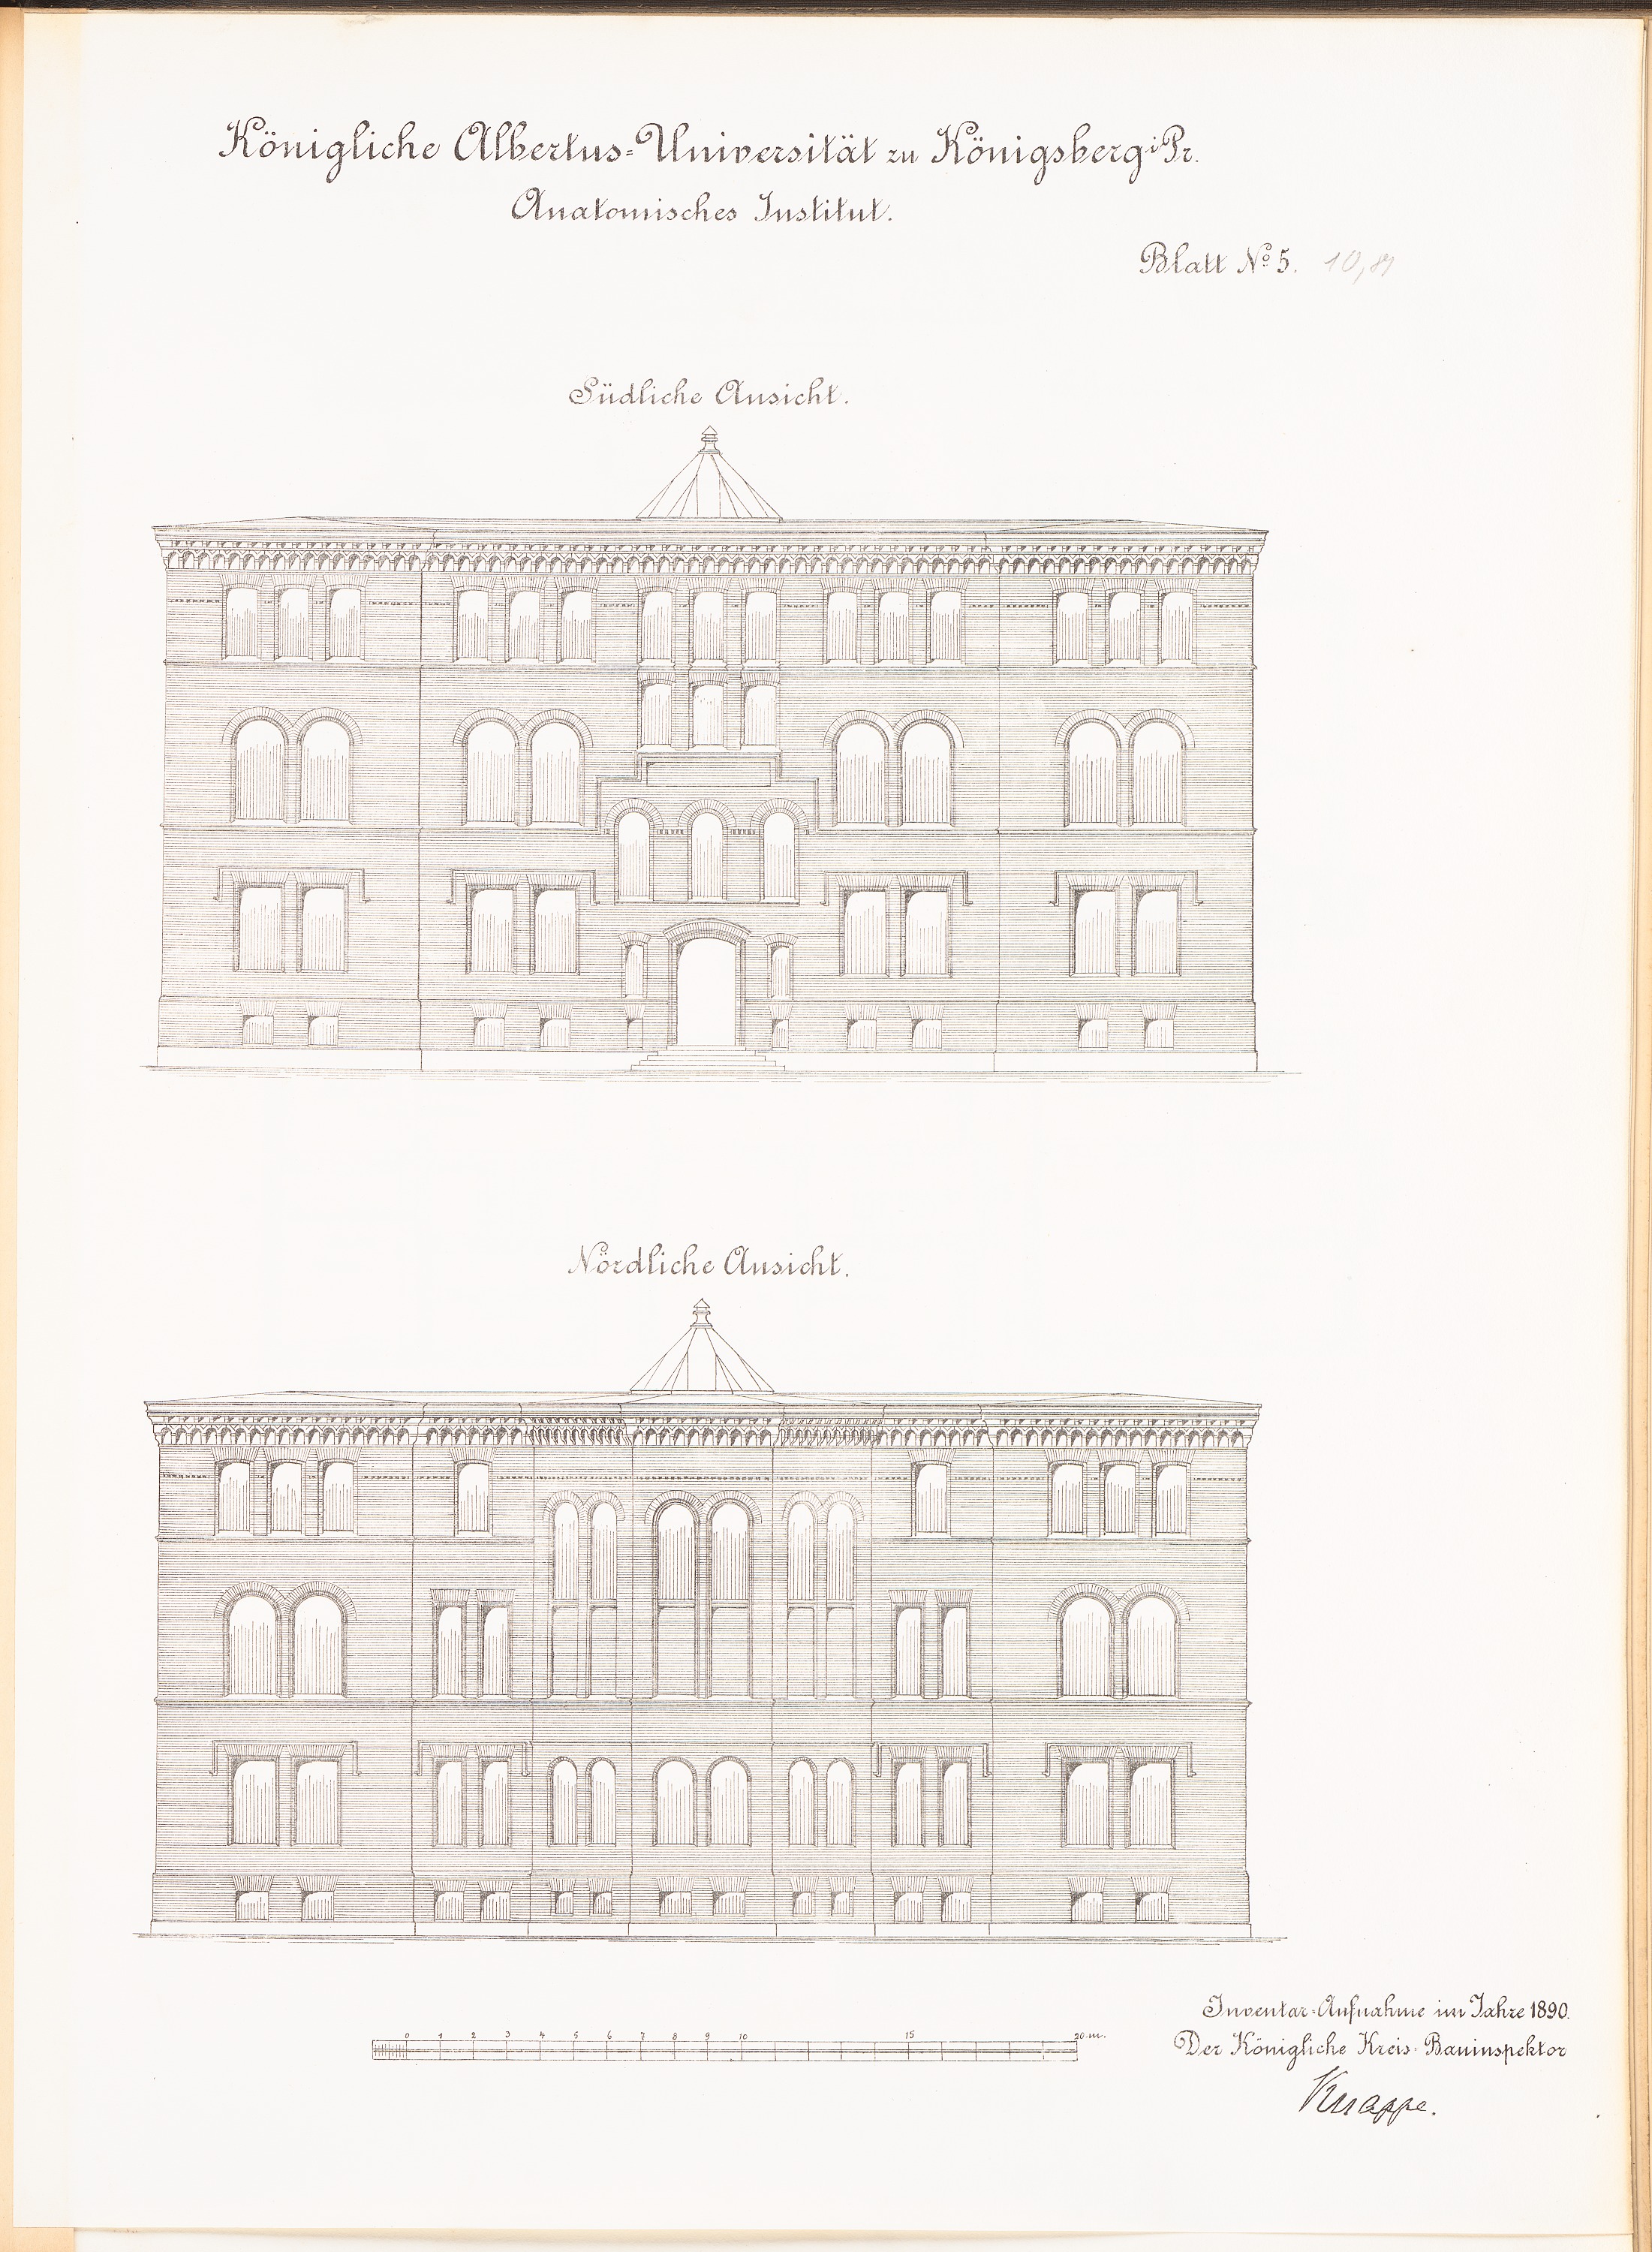 Königliche Albertus-Universität zu Königsberg i. Pr.
Anatomisches Institut.
Blatt No 5.
Südliche Ansicht.
Nördliche Ansicht.
0 1 2 3 4 5 6 7 8 9 10 15 20 m.
Inventar-Aufnahme im Jahre 1890.
Der Königliche Kreis-Bauinspektor
Knappe.